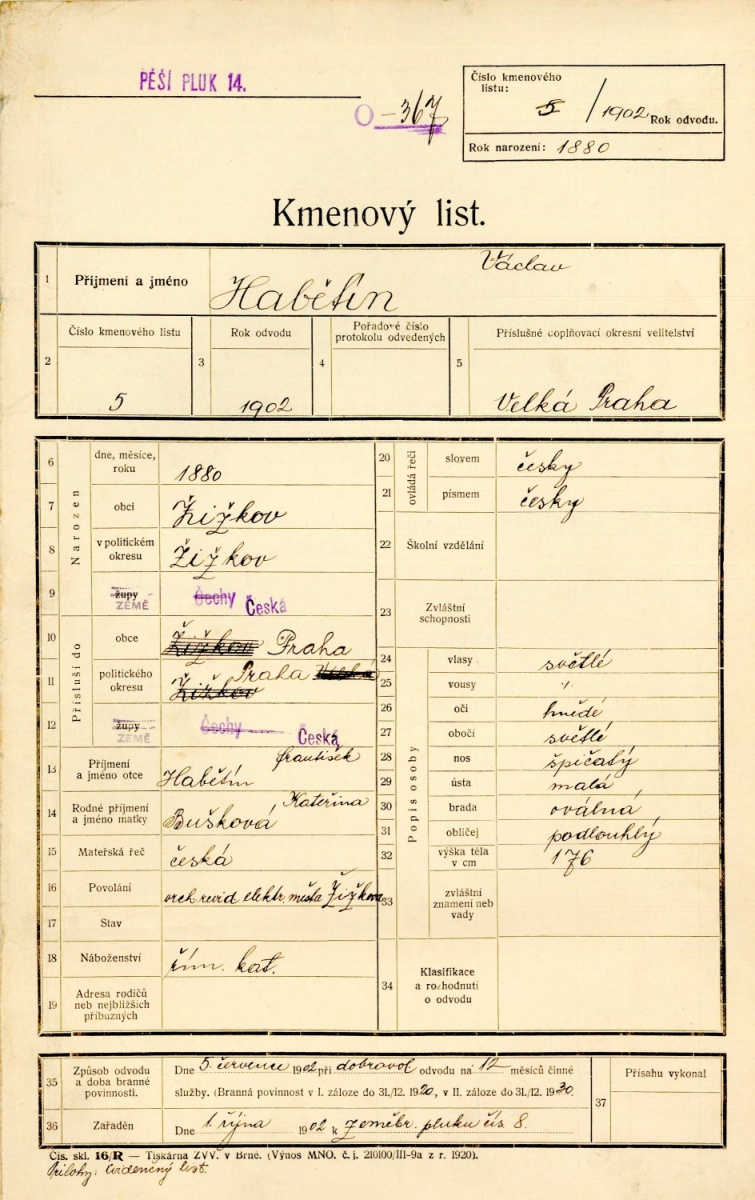 PĚŠÍ PLUK 14.
O-367
Číslo kmenového listu: 5 / 1902 Rok odvodu.
Rok narození: 1880
Kmenový list.
1 Příjmení a jméno Habětín Václav
2 Číslo kmenového listu 5
3 Rok odvodu 1902
4 Pořadové číslo protokolu odvedených
5 Příslušné doplňovací okresní velitelství Velká Praha
Narozen
6 dne, měsíce, roku 1880
7 obci Žižkov
8 v politickém okresu Žižkov
9 župy ZEMĚ Čechy Česká
Přísluší do
10 obce Žižkov Praha
11 politického okresu Žižkov Praha Velká
12 župy ZEMĚ Čechy Česká
13 Příjmení a jméno otce Habětín František
14 Rodné příjmení a jméno matky Bušková Kateřina
15 Mateřská řeč česká
16 Povolání revid elektr. města Žižkova
17 Stav
18 Náboženství řím. kat.
19 Adresa rodičů neb nejbližších příbuzných
ovládá řeči
20 slovem česky
21 písmem česky
22 Školní vzdělání
23 Zvláštní schopnosti
Popis osoby
24 vlasy světlé
25 vousy ⁒
26 oči hnědé
27 obočí světlé
28 nos špičatý
29 ústa malá
30 brada oválná
31 obličej podlouhlý
32 výška těla v cm 176
33 zvláštní znamení neb vady
34 Klasifikace a rozhodnutí o odvodu
35 Způsob odvodu a doba branné povinnosti. Dne 5. července 1902 při dobrovol odvodu na 12 měsíců činné
služby. (Branná povinnost v I. záloze do 31./12. 1920, v II. záloze do 31./12. 1930.
36 Zařaděn Dne 1. října 1902 k zeměbr. pluku čís. 8.
37 Přísahu vykonal
Čís. skl. 16/R — Tiskárna ZVV. v Brně. (Výnos MNO. č. j. 210100/III-9a z r. 1920).
Přílohy: Evidenční list.